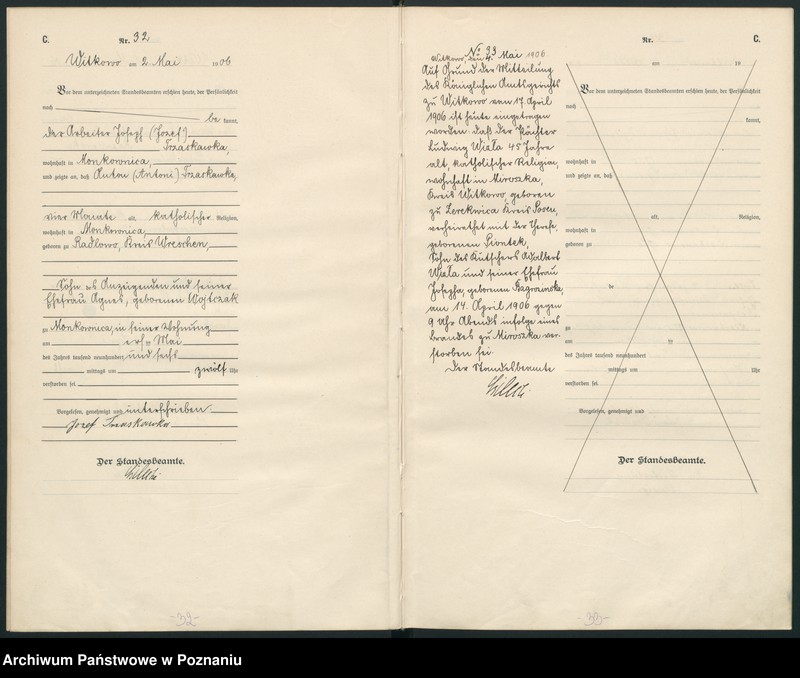 C.
Nr. 32
Witkowo am 2. Mai 1906
Vor dem unterzeichneten Standesbeamten erschien heute, der Persönlichkeit
nach
be kannt,
der Arbeiter Joseph (Jozef)
Trzaskawka,
wohnhaft in Monkownica,
und zeigte an, daß Anton (Antoni) Trzaskawka,
vier Monate alt, katholischer Religion,
wohnhaft in Monkownica
geboren zu Radlowo, Kreis Wreschen,
Sohn des Anzeigenden und seiner
Ehefrau Agnes, geborenen Wojtczak
zu Monkownica, in seiner Wohnung
am ersten Mai
des Jahres tausend neunhundert und sechs
mittags um zwölf Uhr
verstorben sei.
Vorgelesen, genehmigt und unterschrieben.
Jozef Trzaskawka
Der Standesbeamte.
-32-
No 33
Witkowo, den 4. Mai 1906
Auf Grund der Mitteilung
des Königlichen Amtsgerichts
zu Witkowo vom 17. April
1906 ist heute eingetragen
worden, daß der Pächter
Ludwig Wiela 45 Jahre
alt, katholischer Religion,
wohnhaft in Mroszka,
Kreis Witkowo, geboren
zu Cerekwica Kreis Posen,
verheirathet mit der Therese,
geborenen Piontek,
Sohn des Kutschers Adalbert
Wiela und seiner Ehefrau
Josepha, geborenen
am 14. April 1906 gegen
9 Uhr Abends infolge eines
Brandes zu Mroszka ver-
storben sei.
Der Standesbeamte
Nr.
C.
am 19
Vor dem unterzeichneten Standesbeamten erschien heute, der Persönlichkeit
nach
kannt,
wohnhaft in
und zeigte an, daß
alt, Religion,
wohnhaft in
geboren zu
de
zu
am
des Jahres tausend neunhundert
mittags um Uhr
verstorben sei.
Vorgelesen, genehmigt und
Der Standesbeamte.
-33-
Archiwum Państwowe w Poznaniu